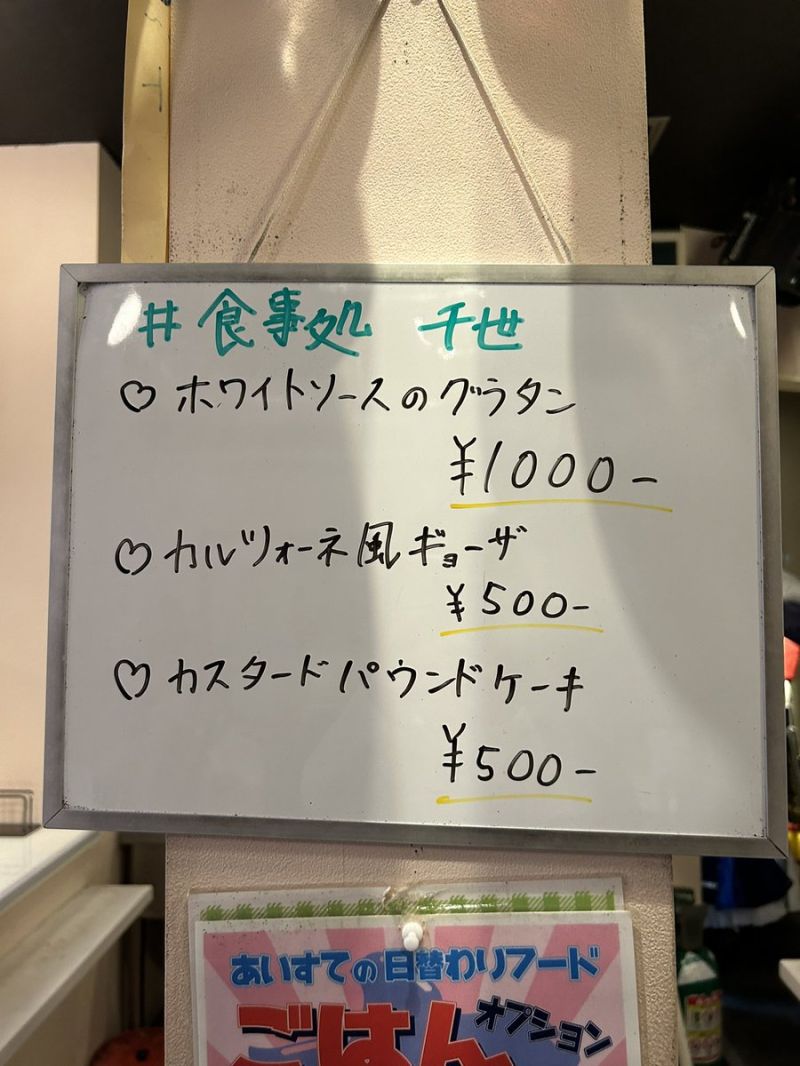 #食事処 千世
♡ホワイトソースのグラタン
¥1000-
♡カルツォーネ風ギョーザ
¥500-
♡カスタードパウンドケーキ
¥500-
あいすての日替わりフード
ごはん
オプション